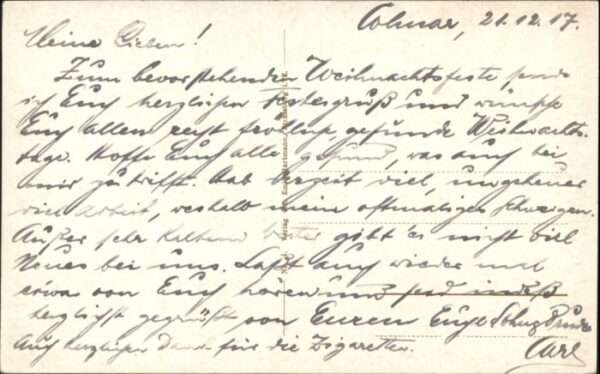 Colmar, 21.12.17.
Meine Lieben!
Zum bevorstehenden Weihnachtsfeste sende
ich Euch herzlichen Festesgruß und wünsche
Euch allen recht fröhliche gesunde Weihnachts-
tage. Hoffe Euch alle gesund, was auch bei
mir zutrifft. Hab derzeit viel, ungeheuer
viel Arbeit, weshalb mein oftmaliges Schweigen.
Außer sehr kaltem Wetter gibt es nicht viel
Neues bei uns. Laßt auch wieder mal
etwas von Euch hören und seid indeß
herzlichst gegrüßt von Eurem Bruder
Auch herzlichen Dank für die Zigaretten. Carl